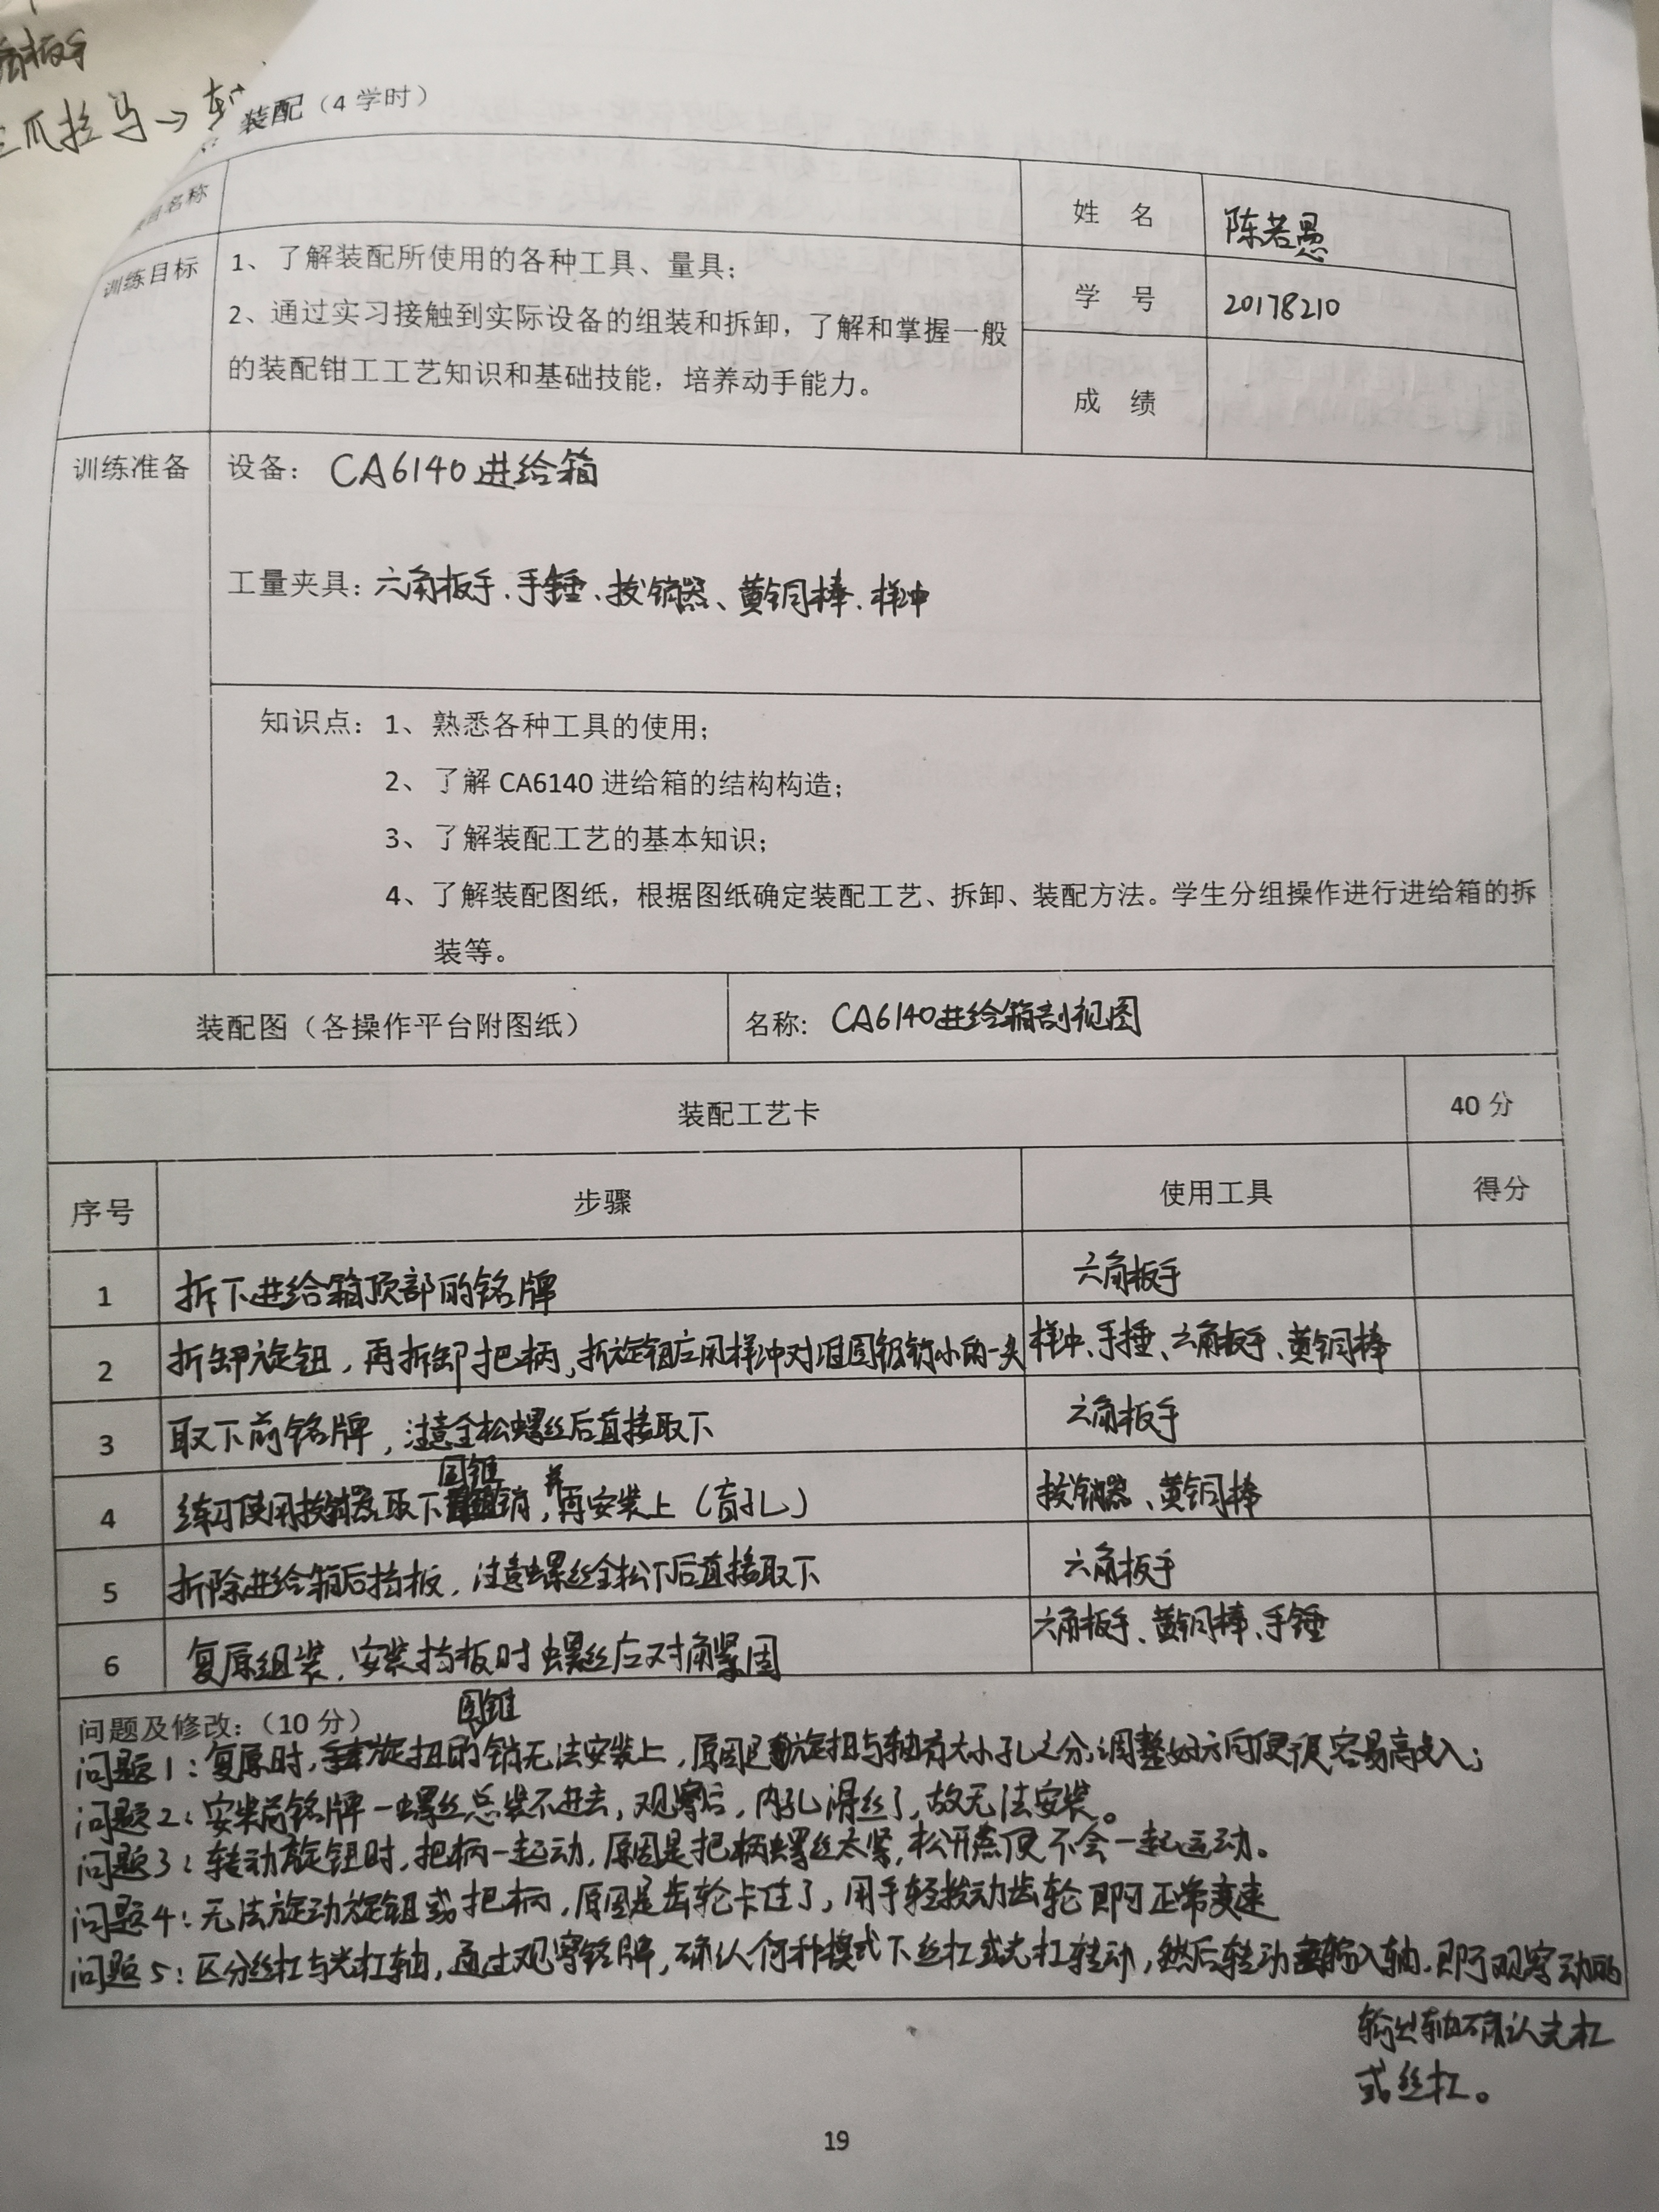 板手
爪拉马→
装配（4 学时）
名称
姓 名
陈若愚
训练目标
1、了解装配所使用的各种工具、量具；
2、通过实习接触到实际设备的组装和拆卸，了解和掌握一般
的装配钳工工艺知识和基础技能，培养动手能力。
学 号
20178210
成 绩
训练准备
设备： CA6140进给箱
工量夹具：六角板手、手锤、拔销器、黄铜棒、样冲
知识点：1、熟悉各种工具的使用；
2、了解 CA6140 进给箱的结构构造；
3、了解装配工艺的基本知识；
4、了解装配图纸，根据图纸确定装配工艺、拆卸、装配方法。学生分组操作进行进给箱的拆
装等。
装配图（各操作平台附图纸）
名称: CA6140进给箱剖视图
装配工艺卡
40 分
序号
步骤
使用工具
得分
1
拆下进给箱顶部的铭牌
六角板手
2
拆卸旋钮，再拆卸把柄，拆旋钮应用样冲对准圆锥销小的一头
样冲、手捶、六角板手、黄铜棒
3
取下前铭牌，注意全松螺丝后直接取下
六角板手
4
练习使用拔销器取下圆锥销，并再安装上（盲孔）
拔销器、黄铜棒
5
拆除进给箱后挡板，注意螺丝全松下后直接取下
六角板手
6
复原组装，安装挡板时螺丝应对角紧固
六角板手、黄铜棒、手锤
问题及修改：（10 分）
问题1：复原时，旋扭的圆锥销无法安装上，原因是旋扭与轴有大小孔之分，调整好方向便很容易敲入；
问题2：安装前铭牌一螺丝总装不进去，观察后，内孔滑丝了，故无法安装。
问题3：转动旋钮时，把柄一起动，原因是把柄螺丝太紧，松开点便不会一起运动。
问题4：无法旋动旋钮或把柄，原因是齿轮卡住了，用手轻拨动齿轮即可正常变速
问题5：区分丝杠与光杠轴，通过观察铭牌，确认何种模式下丝杠或光杠转动，然后转动输入轴，即可观察动的
输出轴确认光杠
或丝杠。
19